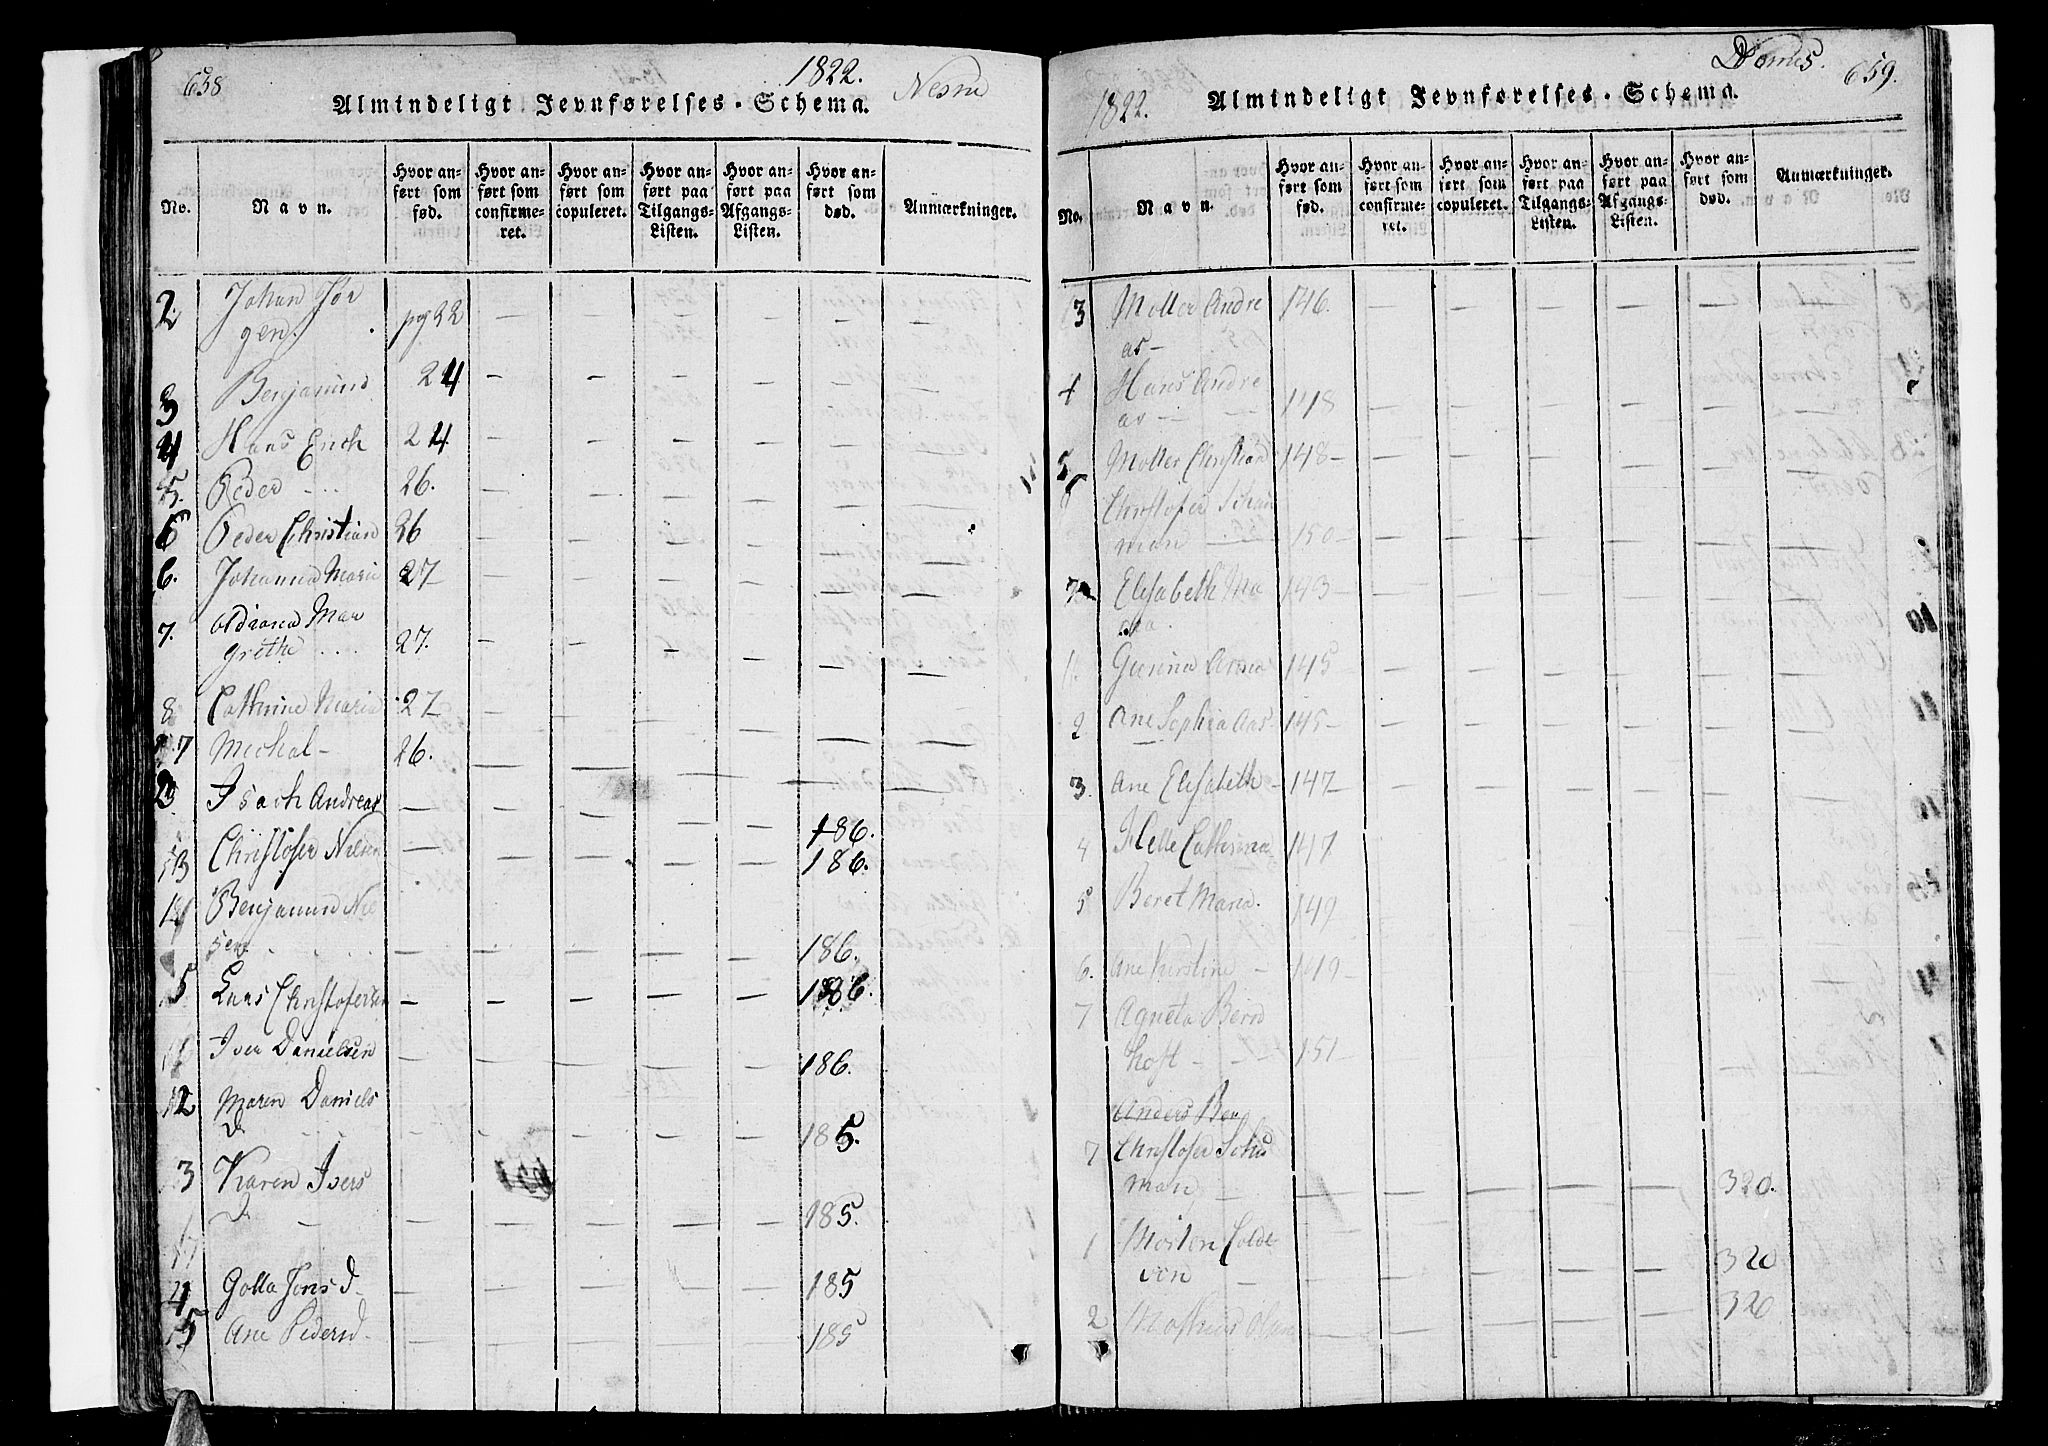 658
1822.
Nesne
Almindeligt Jevnførelses-Schema.
No.
Navn.
Hvor anført som fød.
Hvor anført som confirmeret.
Hvor anført som copuleret.
Hvor anført paa Tilgangs-Listen.
Hvor anført paa Afgangs-Listen.
Hvor anført som død.
Anmærkninger.
2. Johan Jør
gen. pag 22 — — — — — —
3 Benjamind 24 — — — — — —
4 Hans Erich 24 — — — — — —
5. Peder 26. — — — — — —
6 Peder Christian 26 — — — — — —
6. Johanna Maria 27 — — — — — —
7. Adriana Mar
grethe 27. — — — — — —
8 Cathrine Maria 27 — — — — — —
7 Michal — 26. — — — — — —
Isach Andreas — — — — — 186.
13 Christofer Nielsen — — — — — 186.
Benjamind Niel
sen — — — — — 186.
5 Lars Christofersen — — — — — 186.
Iver Danielsen — — — — — 186.
12 Maren Daniels
D — — — — — 185.
3 Karen Ivers
D — — — — — 185.
4 Golla Jens D. — — — — — 185
5 Ane Pedersd. — — — — — 185
659.
Dønnes.
1822.
Almindeligt Jevnførelses-Schema.
No.
Navn.
Hvor anført som fød.
Hvor anført som confirmeret.
Hvor anført som copuleret.
Hvor anført paa Tilgangs-Listen.
Hvor anført paa Afgangs-Listen.
Hvor anført som død.
Anmærkninger.
3 Moller Andre
as — 146. — — — — —
4 Hans Andre
as — 148 — — — — —
5 Moller Christian 148 — — — — —
6 Christofer Schu
man 150 — — — — —
Elisabeth Ma
ria. 143 — — — — —
1. Gurina Anna 145 — — — — —
2 Ane Sophia Aas 145 — — — — —
3. Ane Elisabeth 147 — — — — —
4 Helle Cathrina 147 — — — — —
5 Beret Maria. 149 — — — — —
6. Ane Kirstine — 149 — — — — —
7 Agneta Bern
hoft — 151 — — — — —
Anders Ben
7 Christofer Schu
man — — — — — — 320.
1 Morten Colde
vin — — — — — — 320
2 Mathias Olsen — — — — — 320